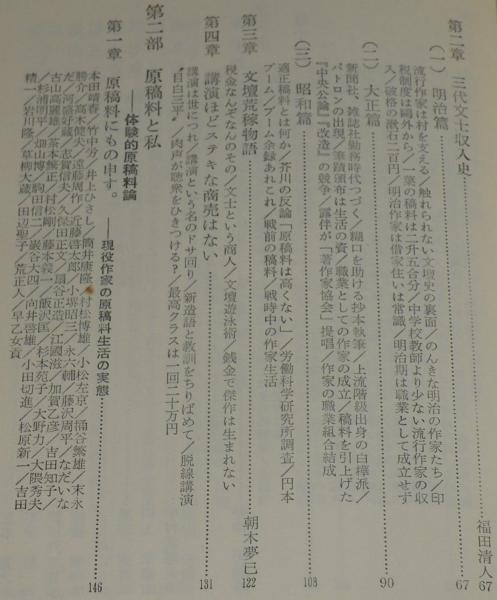 第二章 三代文士収入史 福田清人 67
(一) 明治篇 67
流行作家は村を支える/触れられない文壇史の裏面/のんきな明治の作家たち/印
税制度は鷗外から/一葉の稿料は二升五合分/中学校教師より少ない流行作家の収
入/破格の漱石二百円/明治作家は借家住いは常識/明治期は職業として成立せず
(二) 大正篇 90
新聞社、雑誌社勤務時代つづく/糊口を助ける抄本執筆/上流階級出身の白樺派/
パトロンの出現/筆蹟頒布は生活の資/職業としての作家の成立/稿料を引上げた
『中央公論』『改造』の競争/露伴が「著作家協会」提唱/作家の職業組合結成
(三) 昭和篇 108
適正稿料とは何か/芥川の反論「原稿料は高くない」/労働科学研究所調査/円本
ブーム/ブーム余録あれこれ/戦前の稿料/戦時中の作家生活
第三章 文壇荒稼物語 朝木夢巳 122
税金なんぞなんのその/文士という商人/文壇遊泳術/銭金で傑作は生まれない
第四章 講演ほどステキな商売はない 131
講演は世につれ/講演という名のドサ回り/新造語と教訓をちりばめて/脱線講演
"目白三平"/肉声が聴衆をひきつける?/最高クラスは一回二十万円
第二部 原稿料と私
——体験的原稿料論
第一章 原稿料にもの申す。——現役作家の原稿料生活の実態 146
本田靖春/竹中労/井上ひさし/筒井康隆/村松博雄/小松左京/桶谷繁雄/末永
勝介/高木健夫/遠藤周作/近藤啓太郎/小堺昭三/永六輔/藤沢周平/なだいな
だ/河盛好蔵/志賀信夫/久保田正文/扇谷正造/江國滋/加賀乙彦/吉田知子/
古山高麗雄/茶本繁正/村松剛/藤本義一/飯沢匡/杉本苑子/大野力/大隈秀夫
/杉浦明平/畑山博/駒田信二/巖谷大四/向井啓雄/小田切進/松原新一/吉田
精一/岩川隆/草柳大蔵/田辺聖子/荒正人/早乙女貢